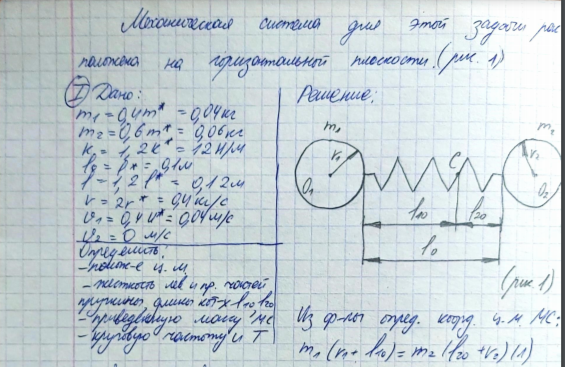 Механическая система для этой задачи рас
положена на горизонтальной плоскости. (рис. 1)
I Дано:
m₁ = 0,4m* = 0,04 кг
m₂ = 0,6m* = 0,06 кг
k = 1,2k* = 12 Н/м
l₀ = l* = 0,1 м
l = 1,2 l* = 0,12 м
r = 2r* = 0,4 кг/с
v₁ = 0,4v* = 0,04 м/с
v₂ = 0 м/с
Определить:
- полож-е ц. м
- жесткость лев и пр. частей
пружины, длины кот-х l₁₀, l₂₀
- приведенную массу МС
- круговую частоту и T
Решение:
m₁ m₂
r₁ C r₂
O₁ O₂
l₁₀ l₂₀
l₀
(рис 1)
Из ф-лы опред. коорд. ц. м. МС:
m₁ (r₁ + l₁₀) = m₂ (l₂₀ + r₂) (1)